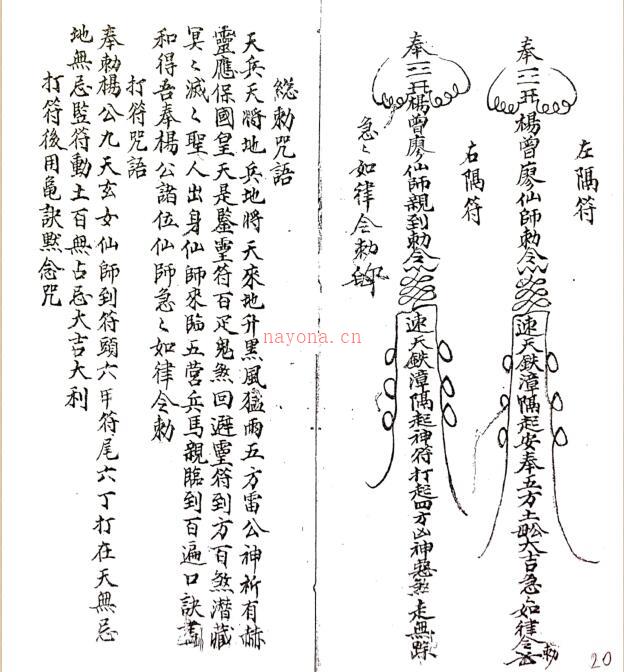 左隅符
奉楊曾廖仙師勅令速天鉄漳隔起安奉五方土大吉急々如律令勅
右隅符
奉楊曾廖仙師親到勅令速天鉄漳隔起神符打起四方凶神惡煞走無踪
急々如律令勅
総勅咒語
天兵天將地兵地將天來地升黑風猛雨五方雷公神祈有赫
靈應保國皇天是鑒靈符百疋鬼煞回避靈符到方百煞潜藏
冥々滅々聖人出身仙師來臨五营兵馬親臨到百遍口訣書
和得吾奉楊公諸位仙師急々如律令勅
打符咒語
奉勅楊公九天玄女仙師到符頭六甲符尾六丁打在天無忌
地無忌監符動土百無占忌大吉大利
打符後用亀訣黙念咒
nayona.cn
20